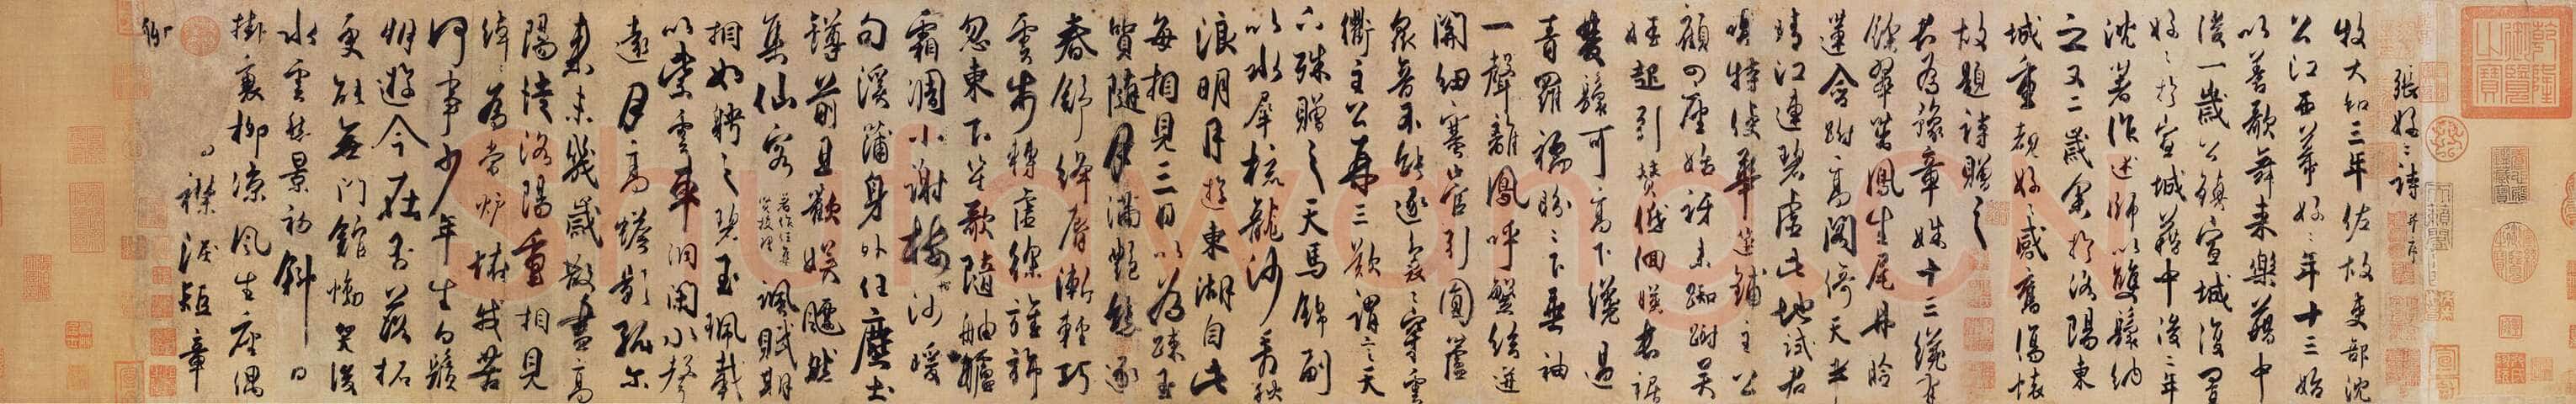 張好好詩 并序
牧大和三年佐故吏部沈
公江西幕好好年十三始
以善歌舞来樂籍中
後一歲公鎮宣城復置
好好於宣城籍中後二年
沈著作述師以雙鬟納
之又二歲余於洛陽東
城重覩好好感舊傷懷
故題詩贈之
君為豫章姝十三纔有
餘翠茁鳳生尾丹臉
蓮含跗高閣倚天半
晴江連碧虛此地試君
唱特使華筵鋪主公
顧四座始訝来踟躕吳
娃起引贊低佪映長裾
雙鬟可高下纔過
青羅襦盼盼下垂袖
一聲離鳳呼繁絃迸
關紐塞管引圓蘆
衆音不能逐裊裊穿雲
衢主公再三歎謂言天
下殊贈之天馬錦副
以水犀梳龍沙看秋
浪明月遊東湖自此
每相見三日以為疎玉
質隨月滿艷態逐
春舒絳脣漸輕巧
雲步轉虛徐旌旆
忽東下笙歌隨舳艫
霜凋小謝樓沙暖
句溪蒲身外任塵土
罇前且歡娛飄然
集仙客著作任集賢校理諷賦期
相如聘之碧玉珮載
以紫雲車洞閉水聲
遠月高蟾影孤尔
来未幾歲散盡高
陽徒洛陽重相見
綽綽為當壚怪我苦
何事少年生白鬚
朋遊今在否落拓
更能無門館慟哭後
水雲愁景初斜日
掛衰柳涼風生座隅
襟淚短章
聊